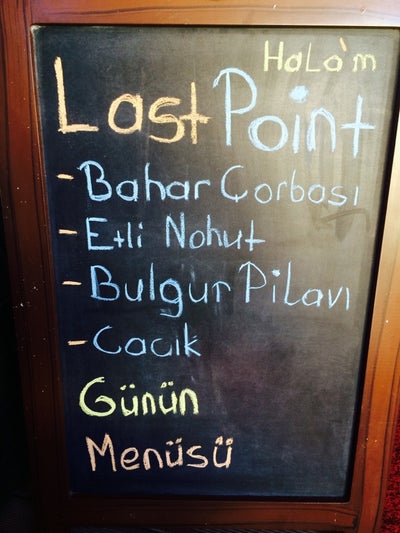 HaLa'm
Last Point
- Bahar Çorbası
- Etli Nohut
- Bulgur PiLavı
- Cacık
Günün
Menüsü